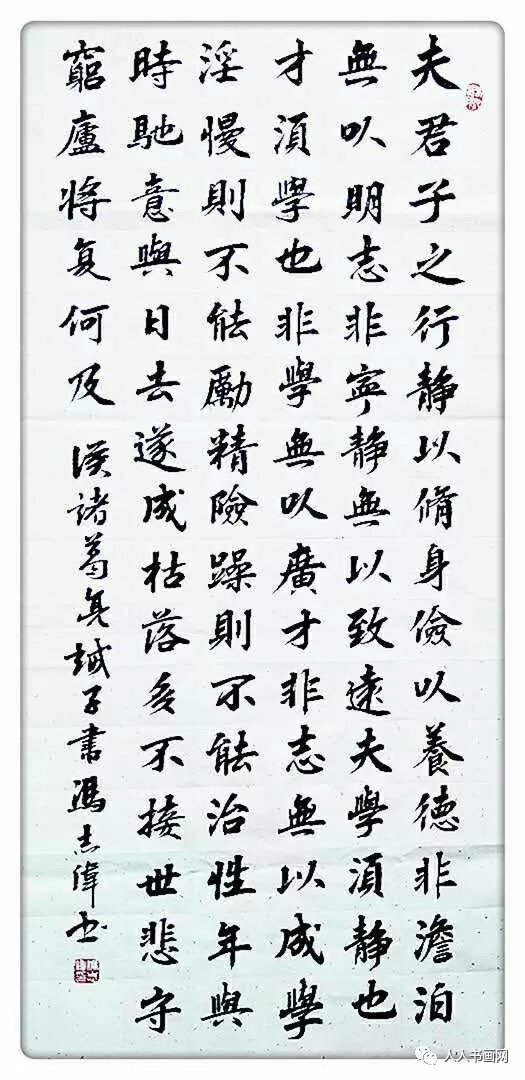 夫君子之行静以脩身儉以養德非澹泊
無以明志非寧静無以致遠夫學須静也
才須學也非學無以廣才非志無以成學
淫慢則不能勵精險躁則不能治性年與
時馳意與日去遂成枯落多不接世悲守
窮廬将复何及 漢諸葛亮誡子書馮志偉书
人人书画网